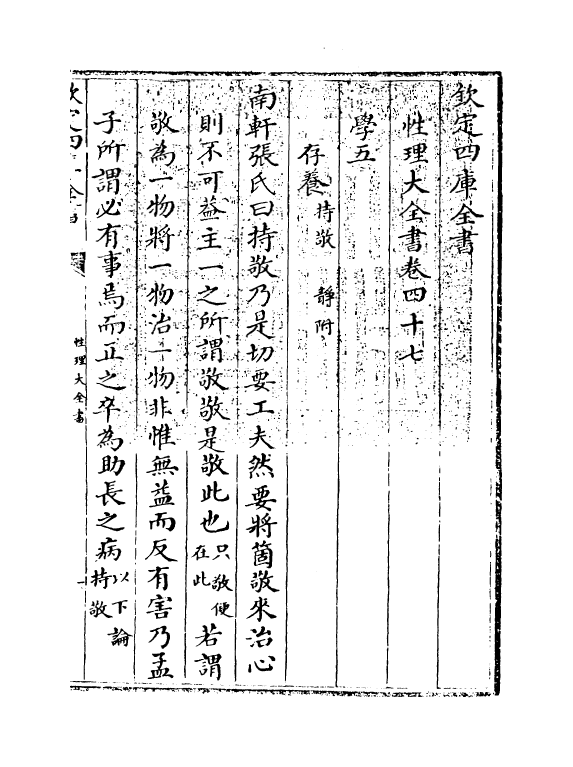 欽定四庫全書
性理大全書卷四十七
學五
存養持敬 靜附
南軒張氏曰持敬乃是切要工夫然要將箇敬來治心
則不可葢主一之所謂敬敬是敬此也只敬便在此若謂
敬為一物將一物治一物非惟無益而反有害乃孟
子所謂必有事焉而正之卒為助長之病以下論持敬
性理大全書
一